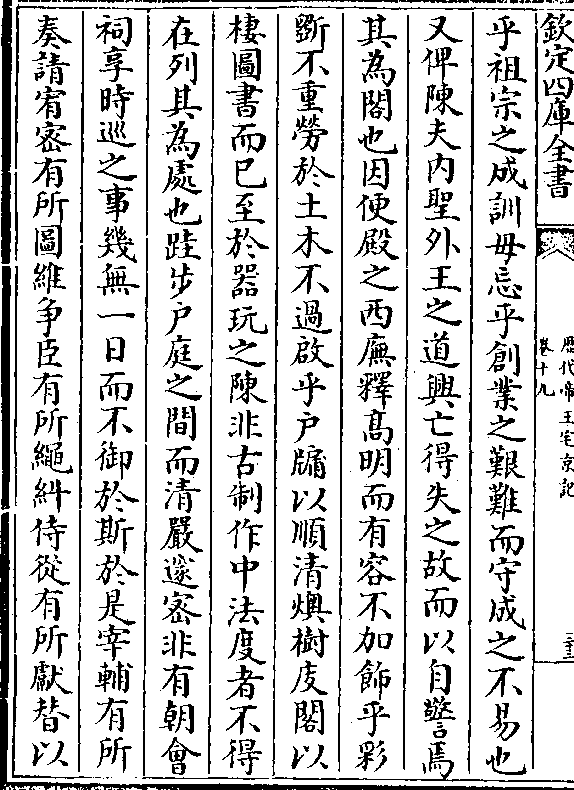 欽定四庫全書
歷代帝王宅京記
卷十九
三十三
乎祖宗之成訓毋忘乎創業之艱難而守成之不易也
又俾陳夫内聖外王之道興亡得失之故而以自警焉
其為閣也因便殿之西廡釋髙明而有容不加飾乎彩
斵不重勞於土木不過啟乎户牖以順清燠樹庋閣以
棲圖書而已至於器玩之陳非古制作中法度者不得
在列其為處也跬步户庭之間而清嚴邃密非有朝會
祠享時巡之事幾無一日而不御於斯於是宰輔有所
奏請宥密有所圖維争臣有所繩糾侍從有所獻替以